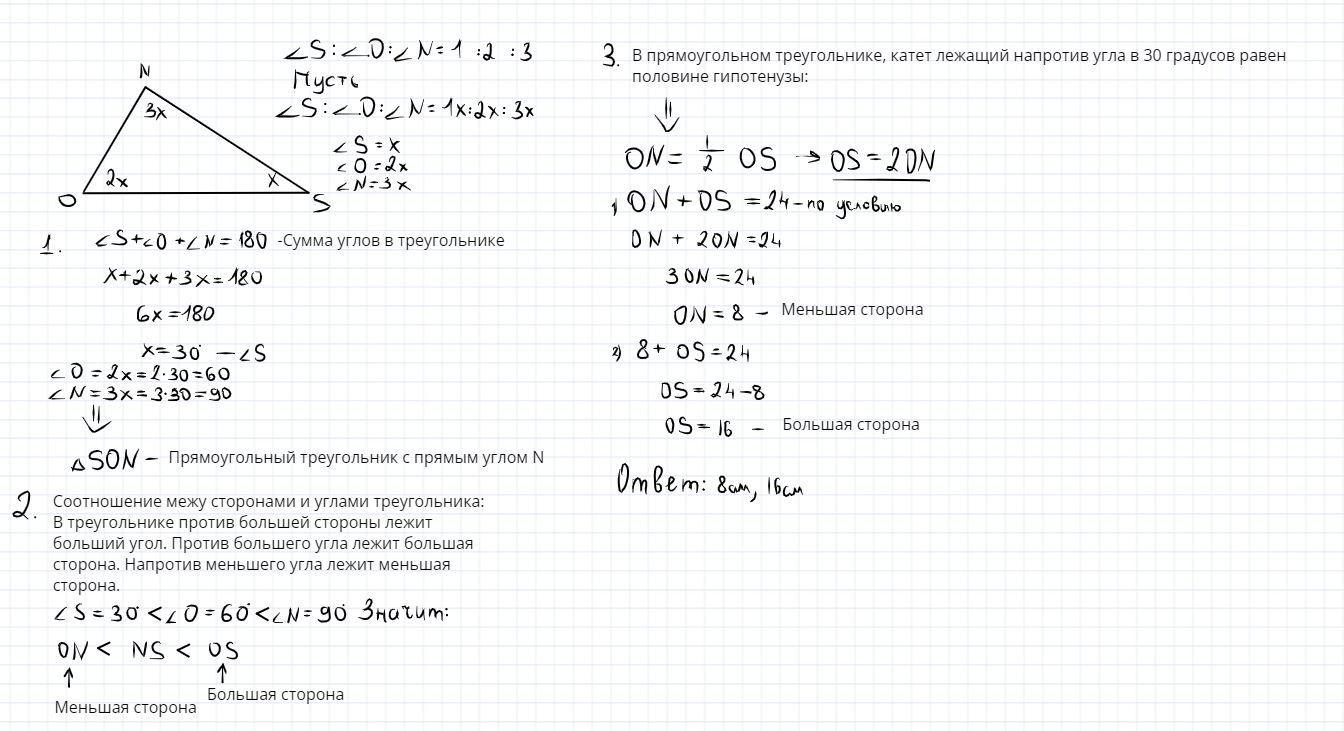 N
3x
2x
x
O
S
∠S:∠O:∠N=1 :2 :3
Пусть
∠S:∠O:∠N=1x:2x:3x
∠S=x
∠O=2x
∠N=3x
1. ∠S+∠O+∠N=180 -Сумма углов в треугольнике
x+2x+3x=180
6x=180
x=30° —∠S
∠O=2x=2·30=60
∠N=3x=3·30=90
⇓
△SON — Прямоугольный треугольник с прямым углом N
2. Соотношение межу сторонами и углами треугольника:
В треугольнике против большей стороны лежит
больший угол. Против большего угла лежит большая
сторона. Напротив меньшего угла лежит меньшая
сторона.
∠S=30°<∠O=60°<∠N=90° Значит:
ON < NS < OS
↑ ↑
Большая сторона
Меньшая сторона
3. В прямоугольном треугольнике, катет лежащий напротив угла в 30 градусов равен
половине гипотенузы:
⇓
ON= 1/2 OS → OS=2ON
1) ON+OS =24-по условию
ON + 2ON=24
3ON=24
ON=8 — Меньшая сторона
2) 8+ OS=24
OS=24-8
OS=16 — Большая сторона
Ответ: 8см, 16см